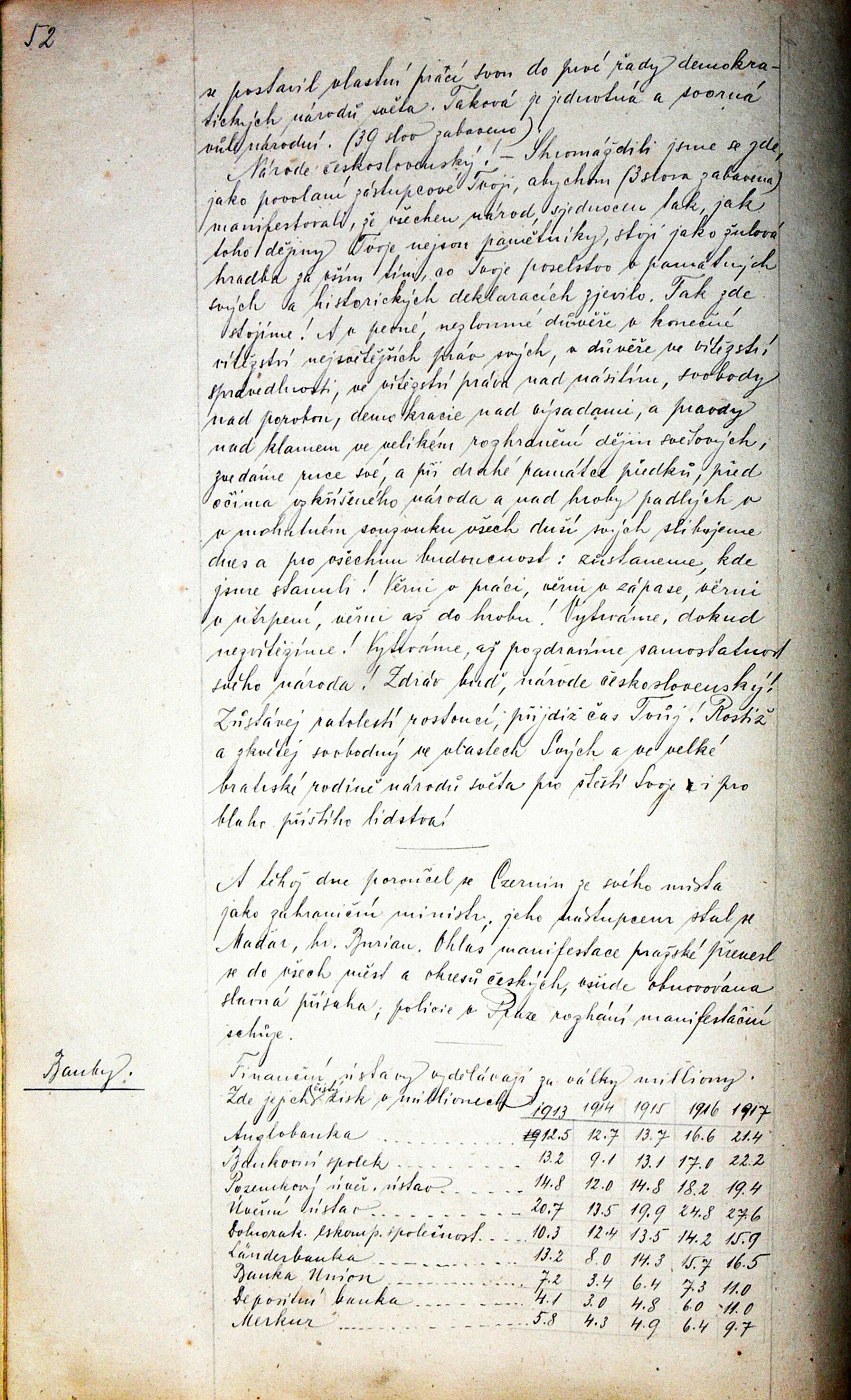 52
se postavil vlastní prácí svou do prvé řady demokra-
tických národů světa. Taková je jednotná a svorná
vůle národní. (39 slov zabaveno)
Národe československý! – Shromáždili jsme se zde,
jako povolaní zástupcové Tvoji, abychom (3 slova zabavena)
manifestovali, že všechen národ, sjednocen tak, jak
toho dějiny Tvoje nejsou pamětníky, stojí jako žulová
hradba za vším tím, co Tvoje poselstvo v památných
svých a historických deklaracích zjevilo. Tak zde
stojíme! A v pevné, nezlomné důvěře v konečné
vítězství nejsvětějších práv svých, v důvěře ve vítězství
spravedlnosti, ve vítězství práva nad násilím, svobody
nad porobou, demokracie nad výsadami, a pravdy
nad klamem ve velikém rozhranění dějin světových,
zvedáme ruce své, a při drahé památce předků, před
očima vzkříšeného národa a nad hroby padlých v
v mohutném souzvuku všech duší svých slibujeme
dnes a pro všechnu budoucnost: zůstaneme, kde
jsme stanuli! Věrni v práci, věrni v zápase, věrni
v utrpení, věrni až do hrobu! Vytrváme, dokud
nezvítězíme! Vytrváme, až pozdravíme samostatnost
svého národa! Zdráv buď, národe československý!
Zůstávej ratolestí rostoucí, přijdiž čas Tvůj! Rostiž
a zkvétej svobodný ve vlastech Svých a ve velké
bratrské rodině národů světa pro štěstí Svoje i pro
blaho příštího lidstva!
A téhož dne poroučel se Czernin ze svého místa
jako zahraniční ministr, jeho nástupcem stal se
Maďar, hr. Burian. Ohlas manifestace pražské přenesl
se do všech měst a okresů českých, všude obnovována
slavná přísaha; policie v Praze rozhání manifestační
schůze.
Banky.
Finanční ústavy vydělávají za války milliony.
Zde jejich čistý zisk v millionech 1913 1914 1915 1916 1917
Anglobanka 12.5 12.7 13.7 16.6 21.4
Bankovní spolek 13.2 9.1 13.1 17.0 22.2
Pozemkový úvěr. ústav 14.8 12.0 14.8 18.2 19.4
Úvěrní ústav 20.7 13.5 19.9 24.8 27.6
Dolnorak. eskomp. společnost 10.3 12.4 13.5 14.2 15.9
Länderbanka 13.2 8.0 14.3 15.7 16.5
Banka Union 7.2 3.4 6.4 7.3 11.0
Depositní banka 4.1 3.0 4.8 6.0 11.0
Merkur 5.8 4.3 4.9 6.4 9.7